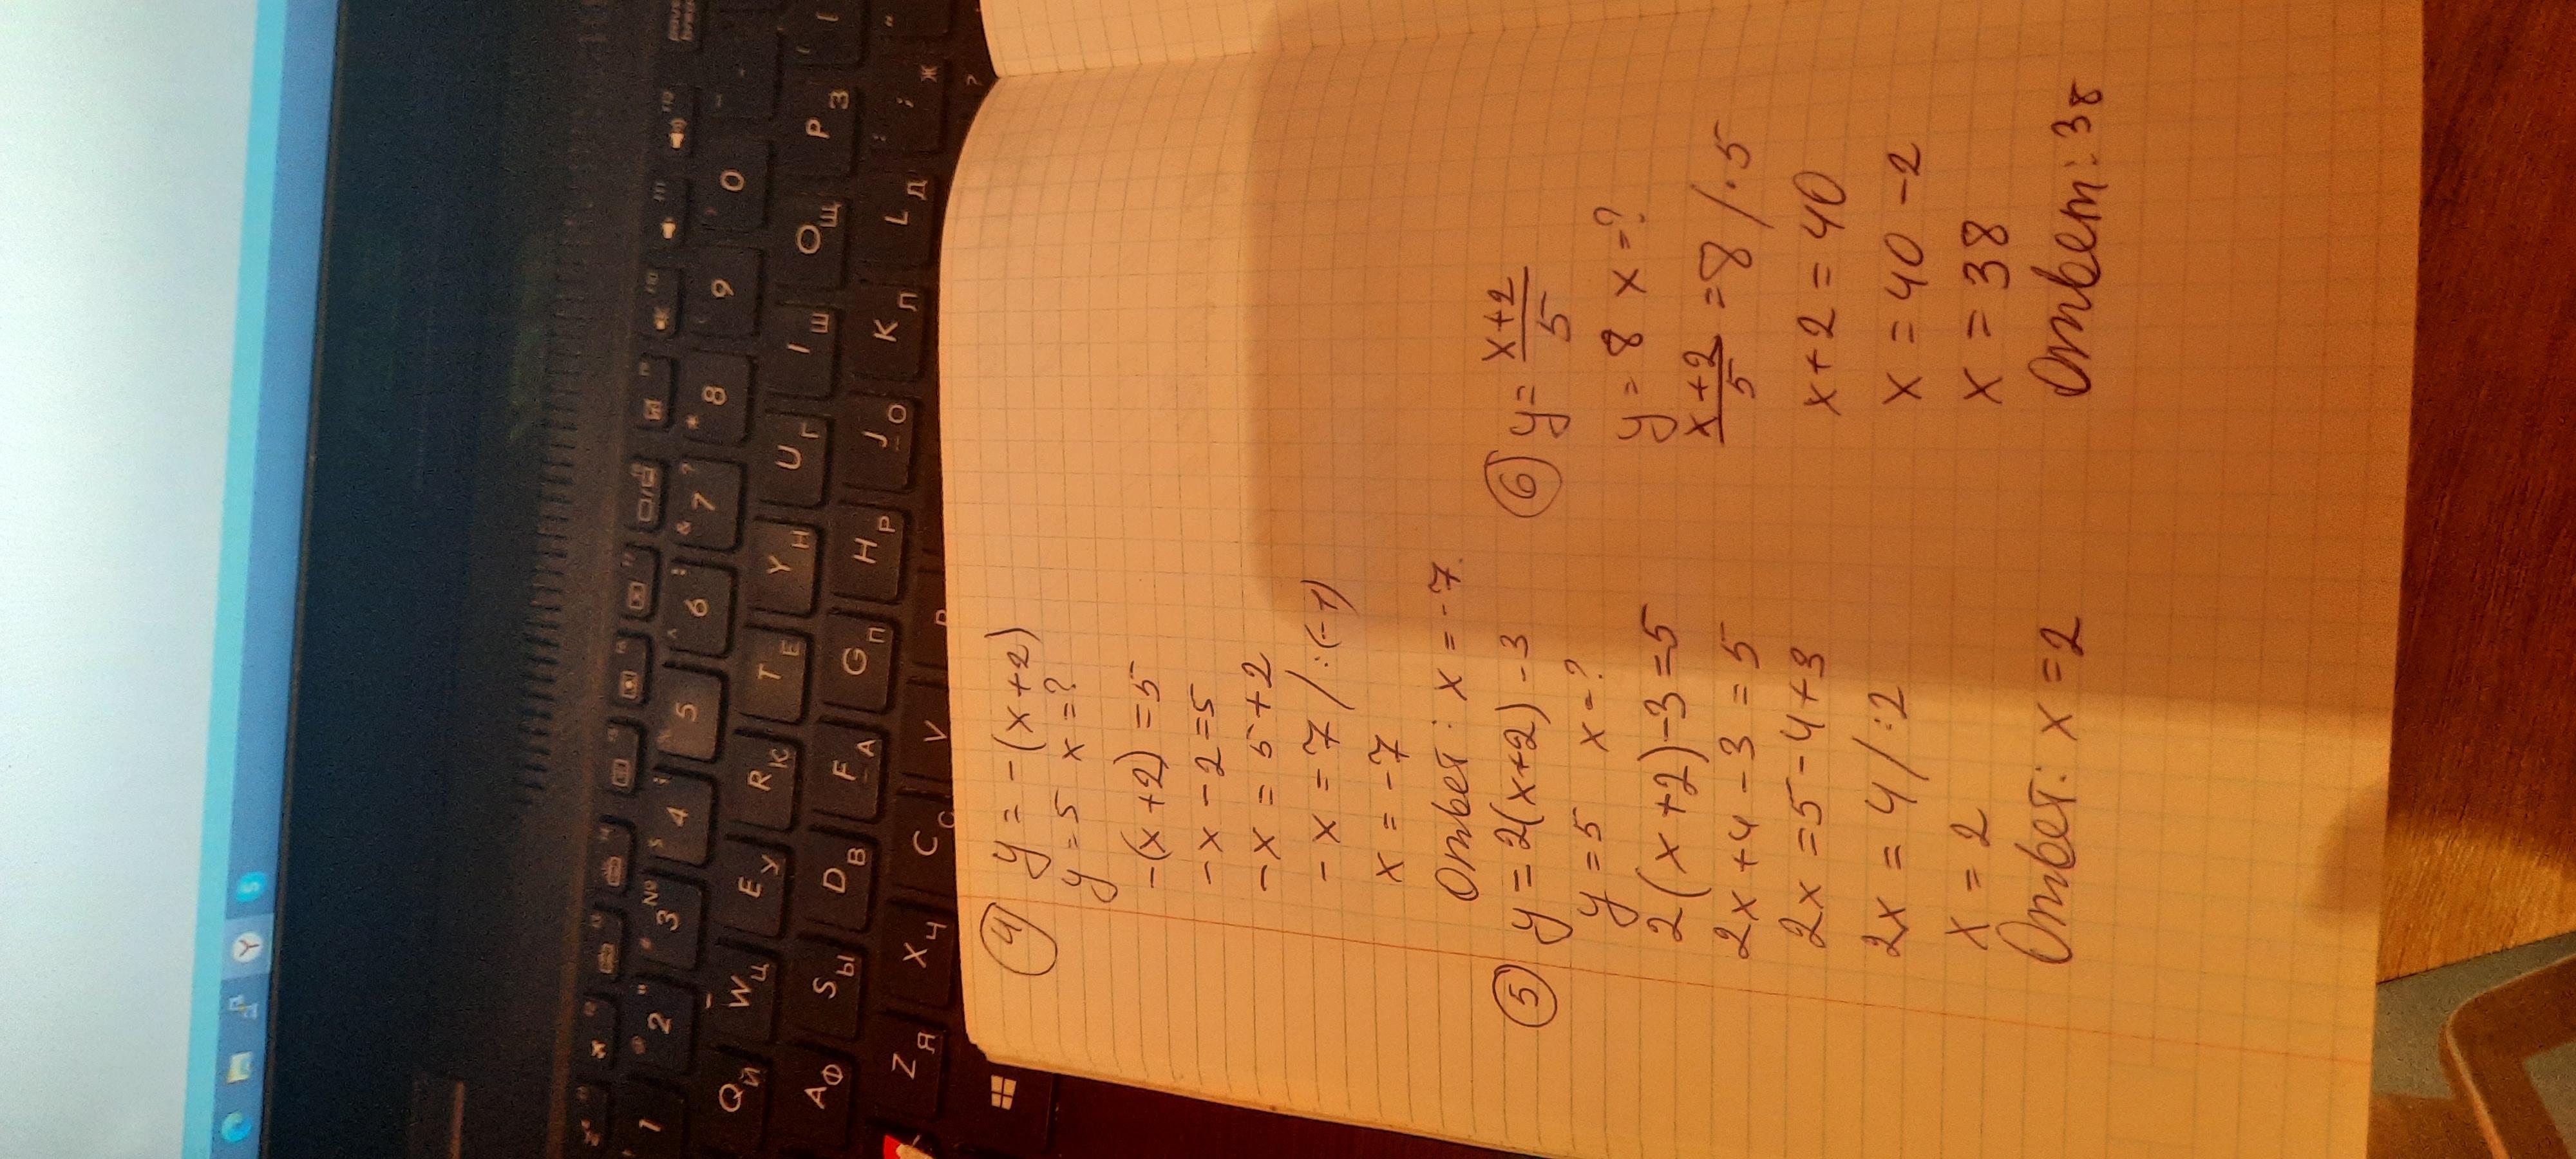 ④ y = -(x+2)
y = 5 x = ?
-(x+2) = 5
-x - 2 = 5
-x = 5+2
-x = 7 / :(-1)
x = -7
Ответ: x = -7.
⑤ y = 2(x+2) - 3
y = 5 x = ?
2(x+2)-3 = 5
2x + 4 - 3 = 5
2x = 5 - 4 + 3
2x = 4 / :2
x = 2
Ответ: x = 2
⑥ y = x+2
5
y = 8 x = ?
x+2
5 = 8 / · 5
x + 2 = 40
x = 40 - 2
x = 38
Ответ: 38
1 2 " 3 № # 4 $ ; 5 % 6 ^ : 7 & ? 8 * 9 ( 0 )
Q Й W Ц E У R К T Е Y Н U Г I Ш O Щ P З
A Ф S Ы D В F А G П H Р J О K Л L Д ; : Ж
Z Я X Ч C С V